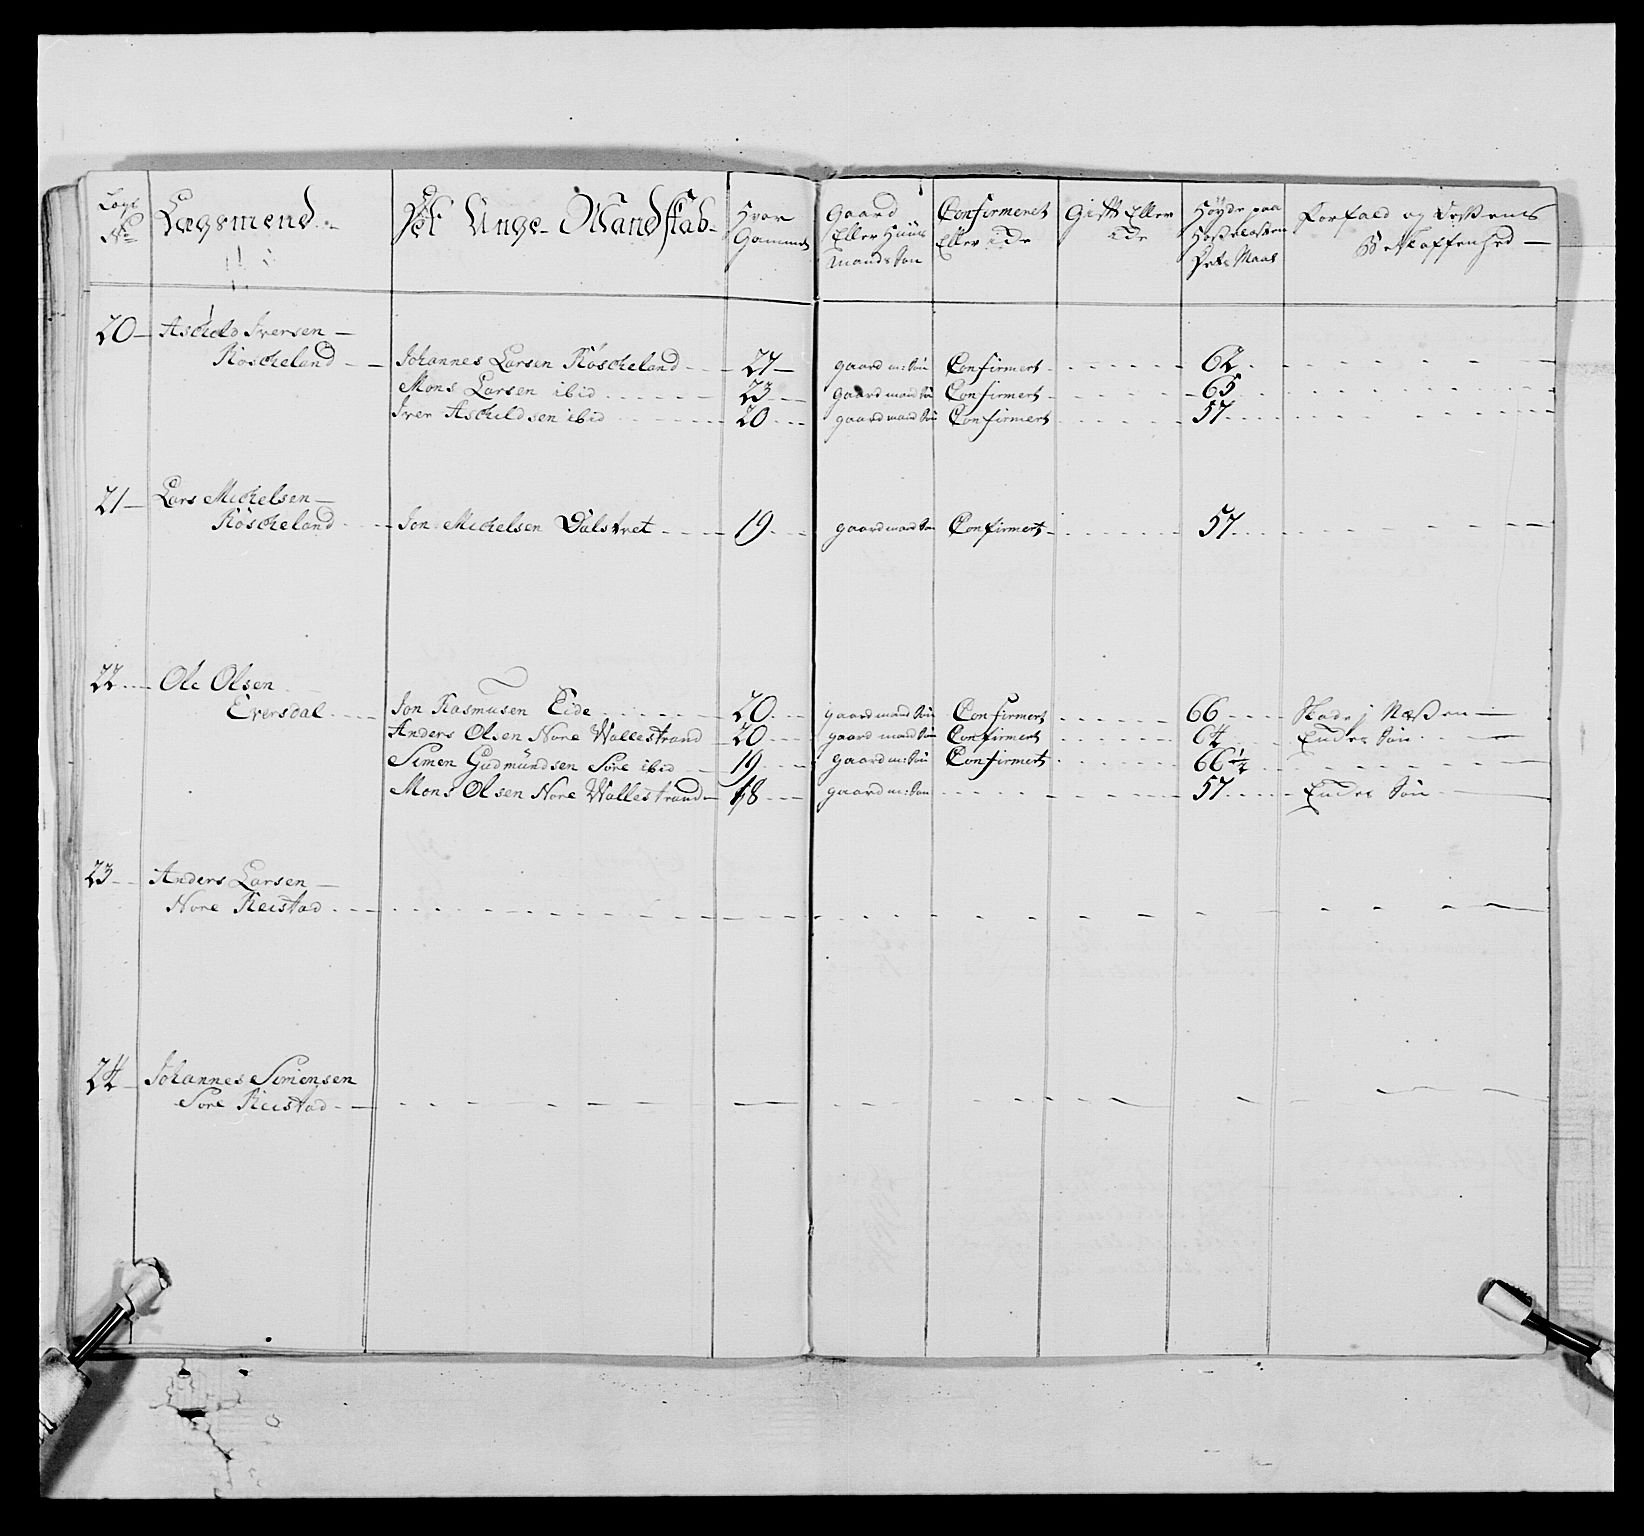 Lægs No Lægsmend Det Unge Mandskab Hvor Gammel Gaard Eller Huus mands Søn Confirmeret Eller Ide Gift Eller Ide Høyde paa Maal
20 Aschild Iversen
Röscheland Johannes Larsen Röscheland 27 gaard m: Søn Confirmert 62
Mons Larsen ibid 23 gaard mand Søn Confirmert 65
Iver Aschildsen ibid 20 gaard mand Søn Confirmert 57
21 Lars Michelsen
Röscheland Jon Michelsen Dalstret 19 gaard mand Søn Confirmert 57
22 Ole Olsen
Eversdal Jon Rasmusen Eide 20 gaard mand Søn Confirmert 66 Skade i Næsen
Anders Olsen Nore Wallestrand 20 gaard mand Søn Confirmert 64 Søn
Simen Gudmundsen Sore ibid 19 gaard m: Søn Confirmert 66 1/2
Mons Olsen Nore Wallestrand 18 gaard m: Søn 57 Søn
23 Anders Larsen
Nore Reistad
24 Johannes Simensen
Sore Reistad